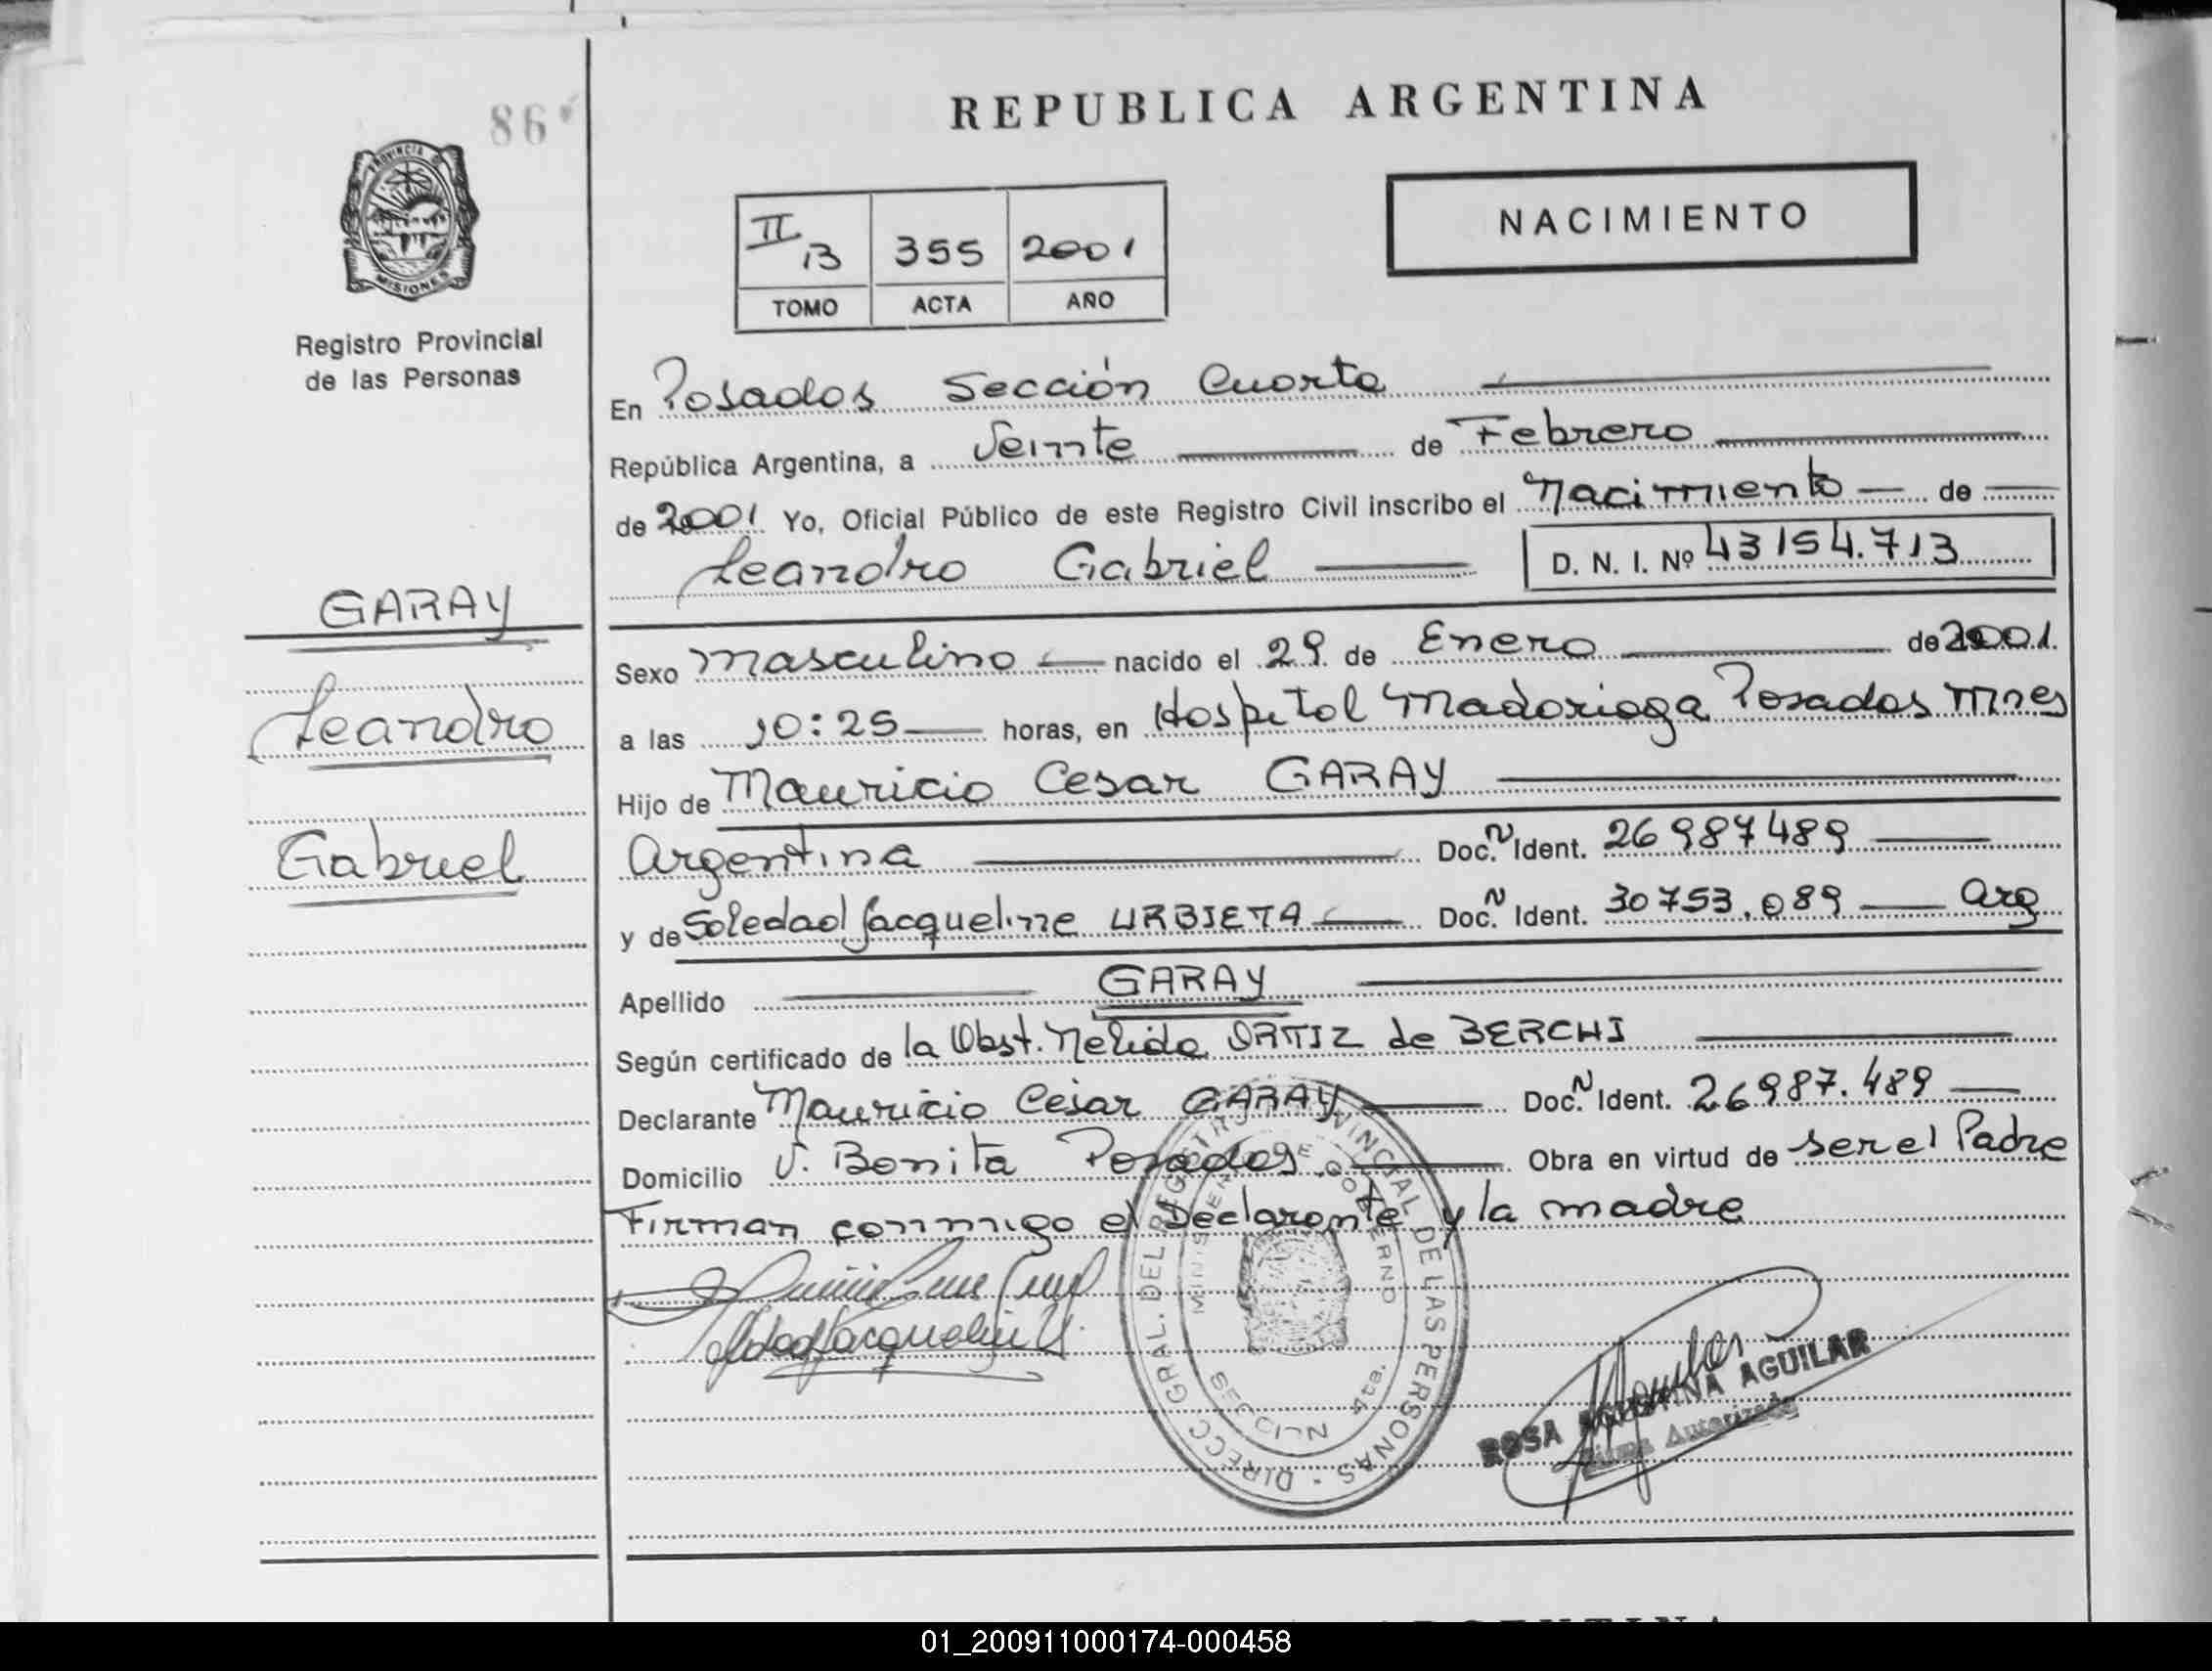 REPUBLICA ARGENTINA
86
PROVINCIA D
MISIONES
Registro Provincial
de las Personas
NACIMIENTO
II B 355 2001
TOMO ACTA AÑO
En Posadas Sección Cuarta
República Argentina, a Veinte de Febrero
de 2001 Yo, Oficial Público de este Registro Civil inscribo el Nacimiento de
Leandro Gabriel D. N. I. Nº 43154.713
GARAY
Leandro
Gabriel
Sexo Masculino nacido el 29 de Enero de 2001.
a las 10:25 horas, en Hospital Madariaga Posadas Mnes
Hijo de Mauricio Cesar GARAY
Argentina Doc. N Ident. 26987489
y de Soledad Jacqueline URBIETA Doc. N Ident. 30753.089 Arg
Apellido GARAY
Según certificado de la Obst. Nelida ORTIZ de BERCHI
Declarante Mauricio Cesar GARAY Doc. N Ident. 26987.489
Domicilio V. Bonita Posadas Obra en virtud de ser el Padre
Firman conmigo el Declarante y la madre
DIRECC GRAL. DEL REGISTRO PROVINCIAL DE LAS PERSONAS
MINISTERIO DE GOBIERNO
SECCION 4ta.
ROSA AGUSTINA AGUILAR
Firma Autorizada
01_200911000174-000458